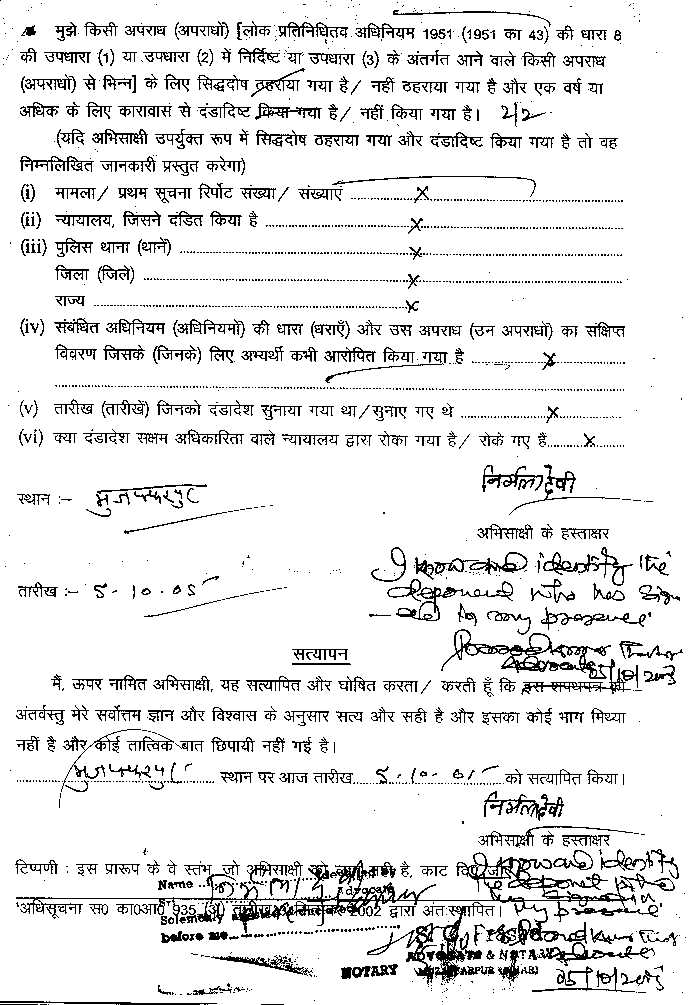 मुझे किसी अपराध (अपराधों) [लोक प्रतिनिधितव अधिनियम 1951 (1951 का 43) की धारा 8
की उपधारा (1) या उपधारा (2) में निर्दिष्ट या उपधारा (3) के अंतर्गत आने वाले किसी अपराध
(अपराधों) से भिन्न] के लिए सिद्धदोष ठहराया गया है/ नहीं ठहराया गया है और एक वर्ष या
अधिक के लिए कारावास से दंडादिष्ट किया गया है/ नहीं किया गया है।
(यदि अभिसाक्षी उपर्युक्त रूप में सिद्धदोष ठहराया गया और दंडादिष्ट किया गया है तो वह
निम्नलिखित जानकारी प्रस्तुत करेगा)
(i) मामला/ प्रथम सूचना रिर्पोट संख्या/ संख्याएं ........ X
(ii) न्यायालय, जिसने दंडित किया है ........ X
(iii) पुलिस थाना (थानें) ........ X
जिला (जिले) ........ X
राज्य ........ X
(iv) संबंधित अधिनियम (अधिनियमों) की धारा (धराएँ) और उस अपराध (उन अपराधों) का संक्षिप्त
विवरण जिसके (जिनके) लिए अभ्यर्थी कभी आरोपित किया गया है ........ X
(v) तारीख (तारीखें) जिनको दंडादेश सुनाया गया था/ सुनाए गए थे ........ X
(vi) क्या दंडादेश सक्षम अधिकारिता वाले न्यायालय द्वारा रोका गया है/ रोके गए हैं ........ X
निर्मला देवी
स्थान :- मुजफ्फरपुर
अभिसाक्षी के हस्ताक्षर
I know and identify the
deponent who has sign
ed in my presence
तारीख :- 5-10-05
Advocate
05/10/2005
सत्यापन
मैं, ऊपर नामित अभिसाक्षी, यह सत्यापित और घोषित करता/ करती हूँ कि इस शपथपत्र की
अंतर्वस्तु मेरे सर्वोत्तम ज्ञान और विश्वास के अनुसार सत्य और सही है और इसका कोई भाग मिथ्या
नहीं है और कोई तात्विक बात छिपायी नहीं गई है।
मुजफ्फरपुर स्थान पर आज तारीख 5-10-05 को सत्यापित किया।
निर्मला देवी
अभिसाक्षी के हस्ताक्षर
टिप्पणी : इस प्रारूप के वे स्तंभ, जो अभिसाक्षी को लागू नहीं है, काट दिए जाए
I know and identify
the deponent who
Name
Advocate
अधिसूचना स0 का0आ0 935 (अ) 2002 द्वारा अंतःस्थापित।
my presence
Solemnly
before me
ADVOCATE & NOTARY
Advocate
NOTARY MUZAFFARPUR (BIHAR)
05/10/2005